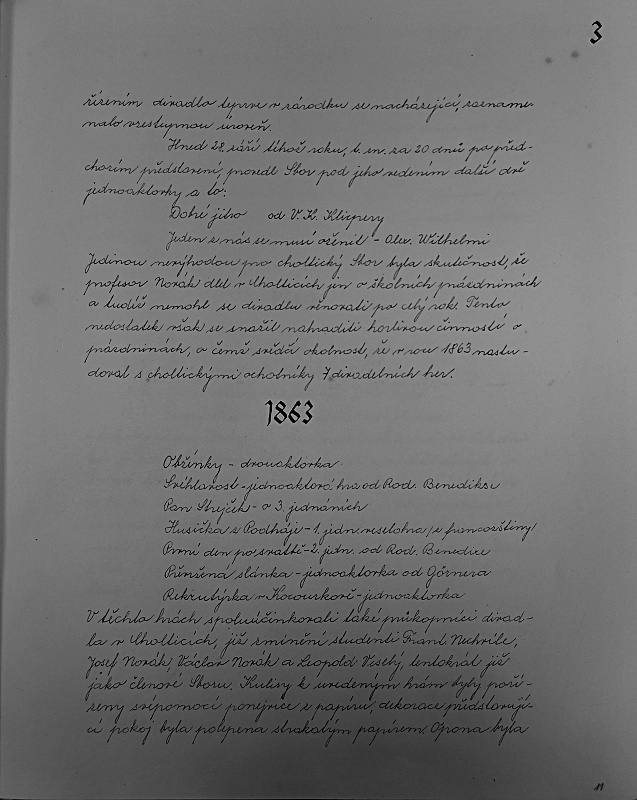 3
řízením divadlo teprve v zárodku se nacházející, zazname-
nalo vzestupnou úroveň.
Hned 28. září téhož roku, t. zn. za 20 dnů po před-
chozím představení, provedl Sbor pod jeho vedením další dvě
jednoaktovky a to:
Dobré jitro od V. K. Klicpery
Jeden z nás se musí oženit - Alex. Wilhelmi
Jedinou nevýhodou pro choltický Sbor byla skutečnost, že
profesor Novák dlel v Cholticích jen o školních prázdninách
a tudíž nemohl se divadlu věnovati po celý rok. Tento
nedostatek však se snažil nahraditi horlivou činností o
prázdninách, o čemž svědčí okolnost, že v roce 1863 nastu-
doval s choltickými ochotníky 7 divadelních her.
1863
Obžínky - dvouaktovka
Švihlarost - jednoaktová hra od Rod. Benedikse
Pan Strejček - o 3. jednáních
Husička z Podháje - 1. jedn. veselohra /z francozštiny/
První den po svatbě - 2. jedn. od Rod. Benedice
Půnžená slánka - jednoaktovka od Görnera
Rekrutýrka v Kocourkově - jednoaktovka
V těchto hrách spoluúčinkovali také průkopníci divad-
la v Cholticích, již zmínění studenti Frant. Nechvíle,
Josef Novák, Václav Novák a Leopold Veselý, tentokrát již
jako členové Sboru. Kulisy k uvedeným hrám byly poří-
zeny svépomocí ponejvíce z papíru, dekorace představují-
cí pokoj byla polepena strakatým papírem. Opona byla
11